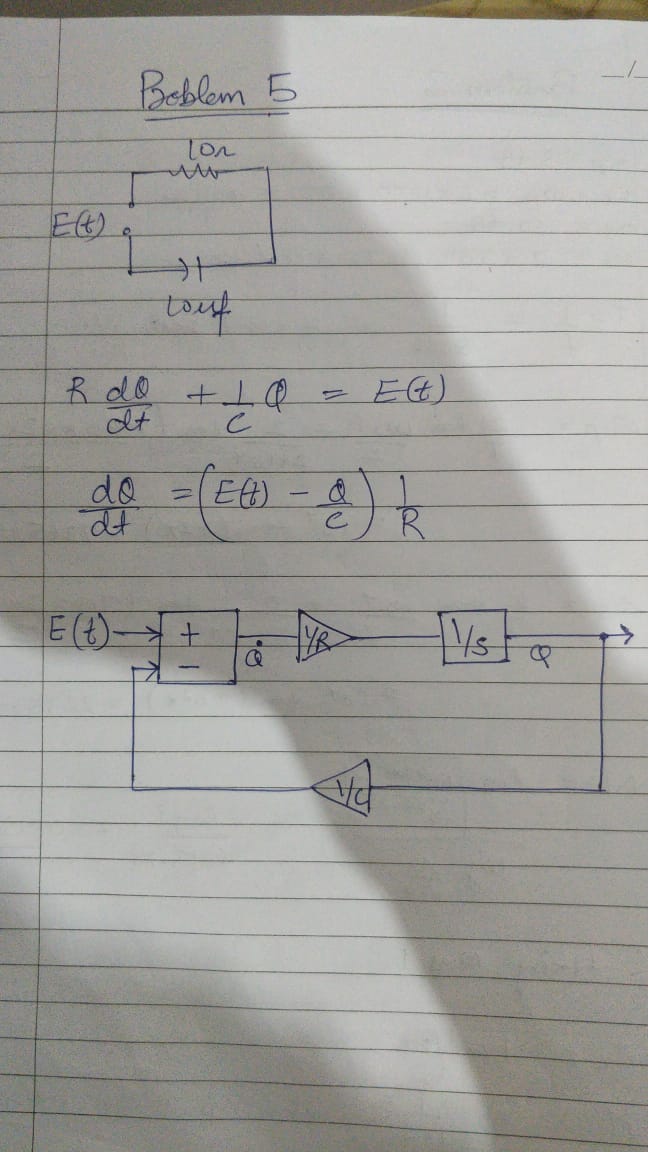 Problem 5
10Ω
E(t)
10uf
R dQ/dt + 1/C Q = E(t)
dQ/dt = (E(t) - Q/C) 1/R
E(t) + - Q̇ 1/R 1/S Q
1/C